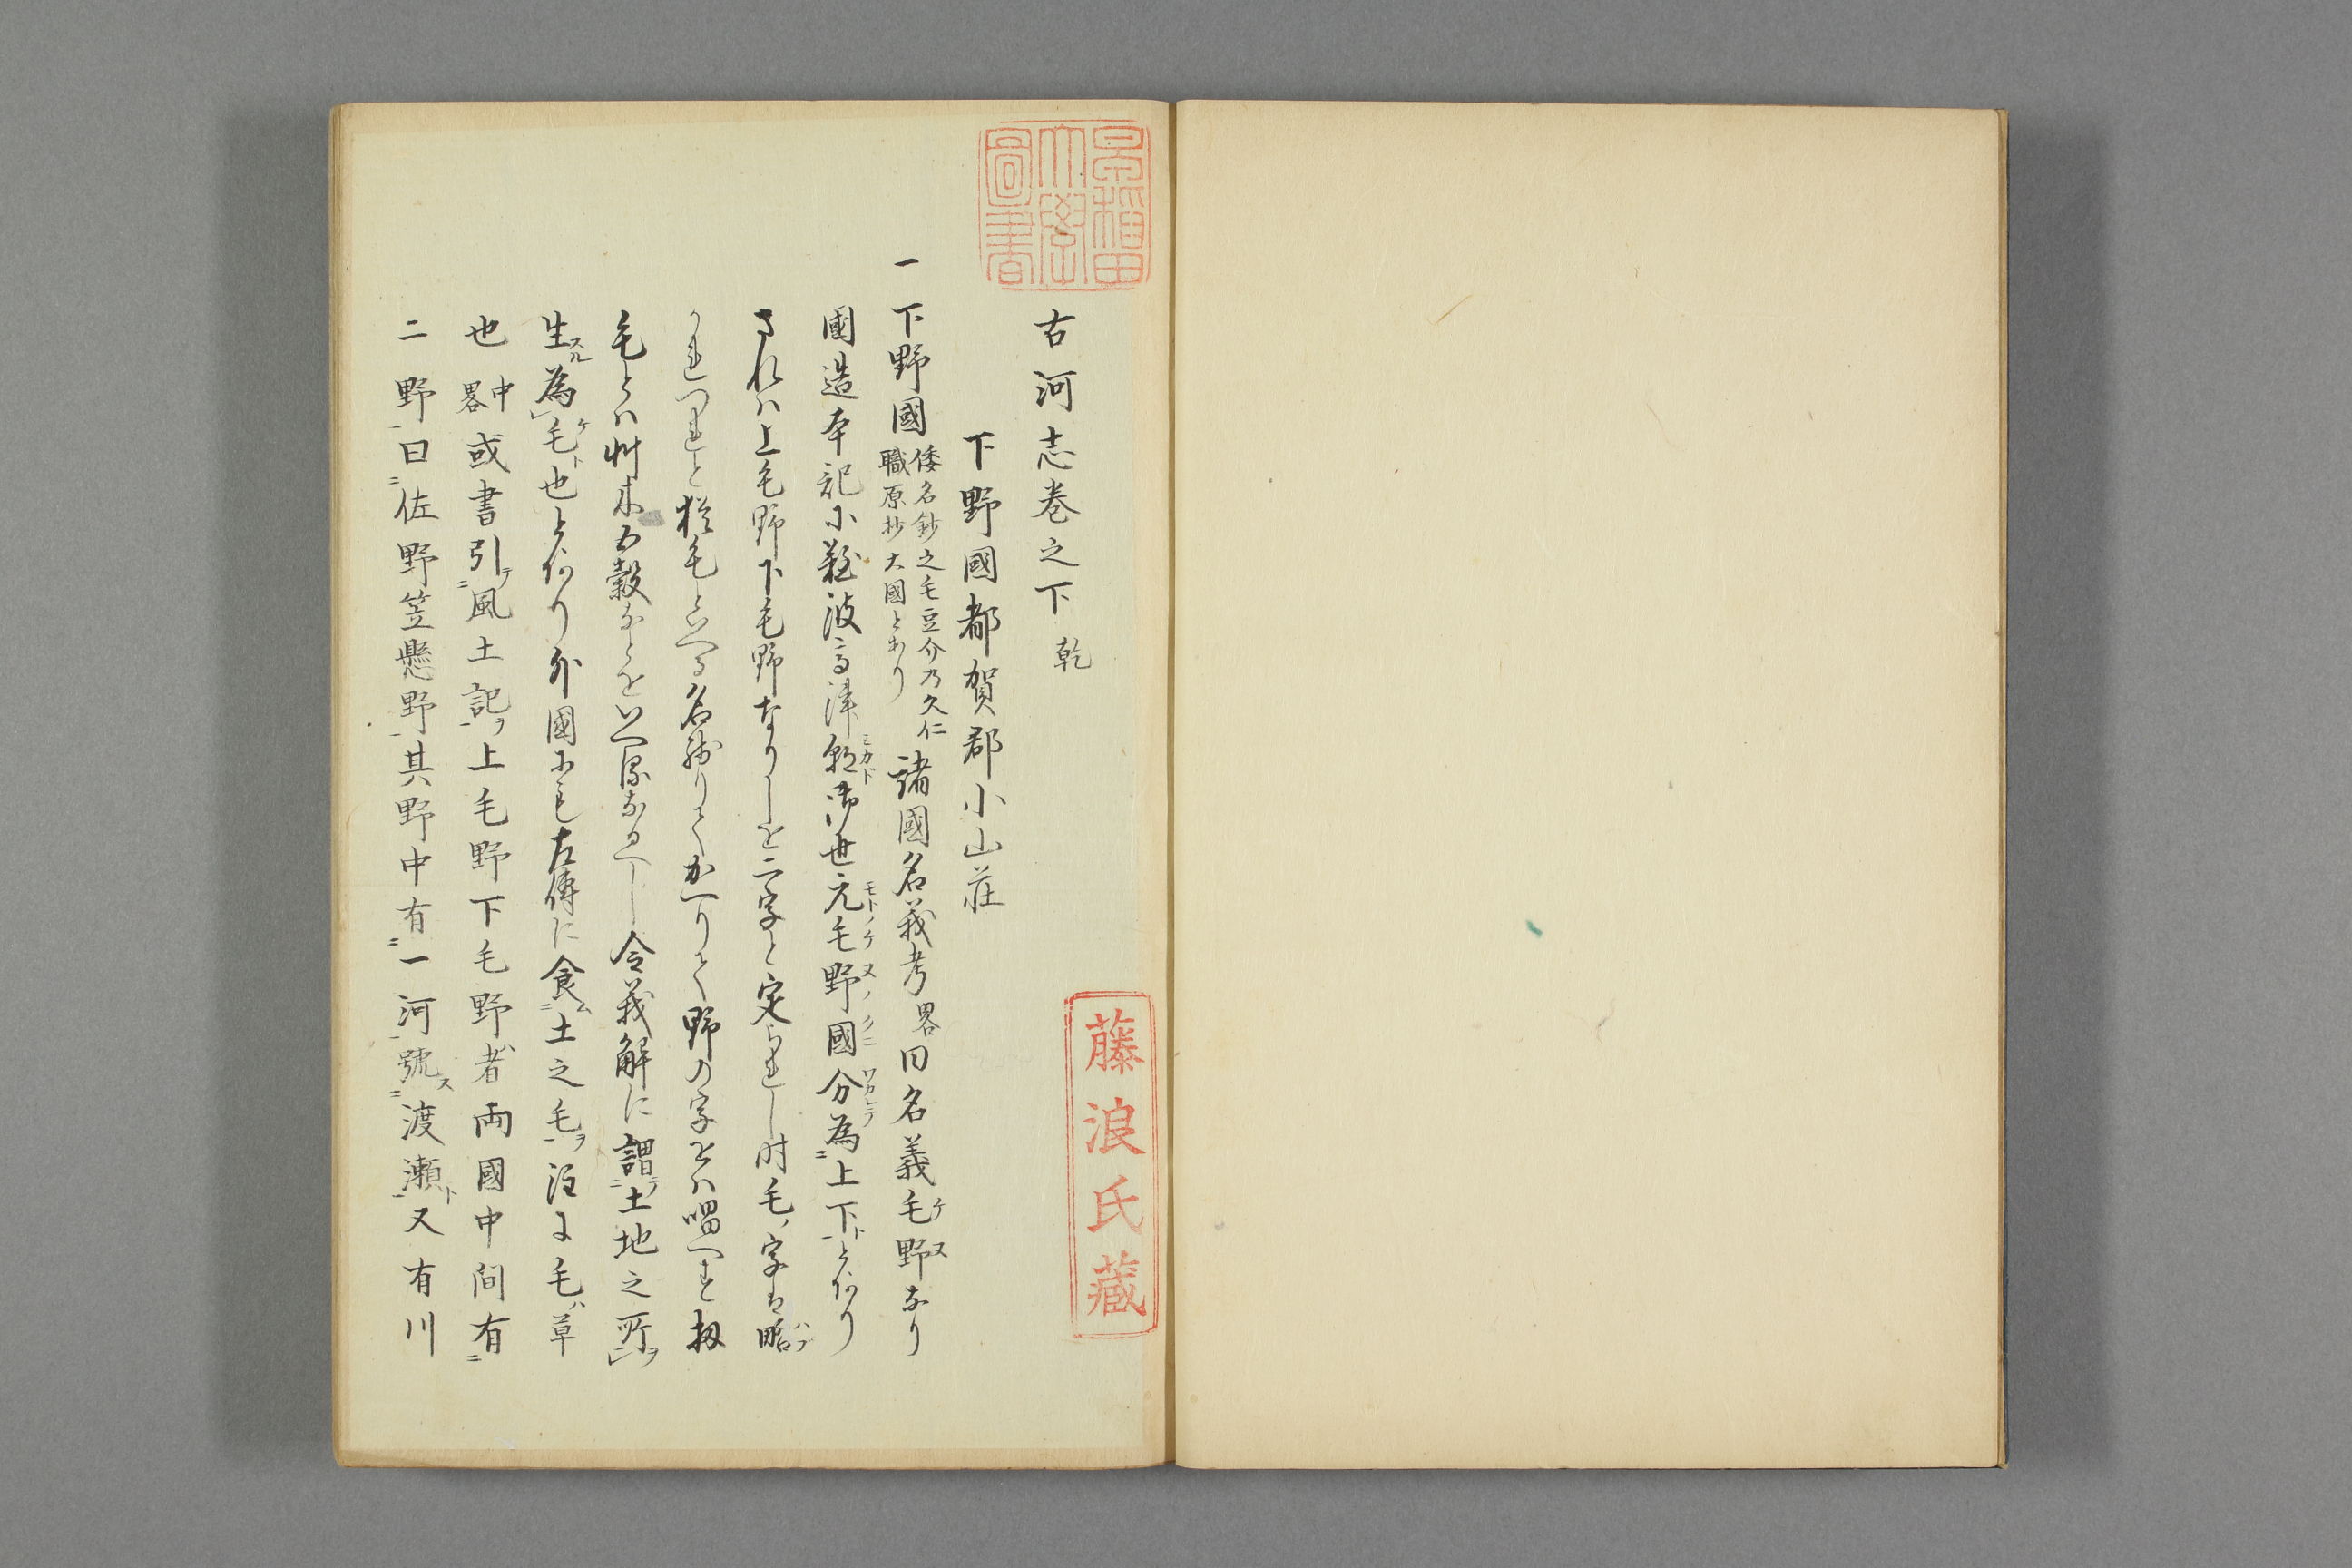 古河志巻之下 乾
下野國都賀郡小山莊
一下野國 倭名鈔之毛豆介乃久仁 職原抄大國とあり 諸國名義考 畧 曰名義毛野なり
國造本記小難波高津朝御世元毛野國分為上下とあり
されハ上毛野下毛野なりしを二字と定られし時毛ノ字は略
かれつれと猶毛といへる名残りてかへりて野の字をハ唱へす扨
毛とハ艸木五穀なとをいへるなるへし令義解に謂土地之所
生為毛也とあり外國にも左傳に食土之毛注に毛ハ草
也 中畧 或書引風土記上毛野下毛野者両國中間有
二野曰佐野笠懸野其野中有一河號渡瀬又有川
早稲田大學圖書
藤浪氏藏